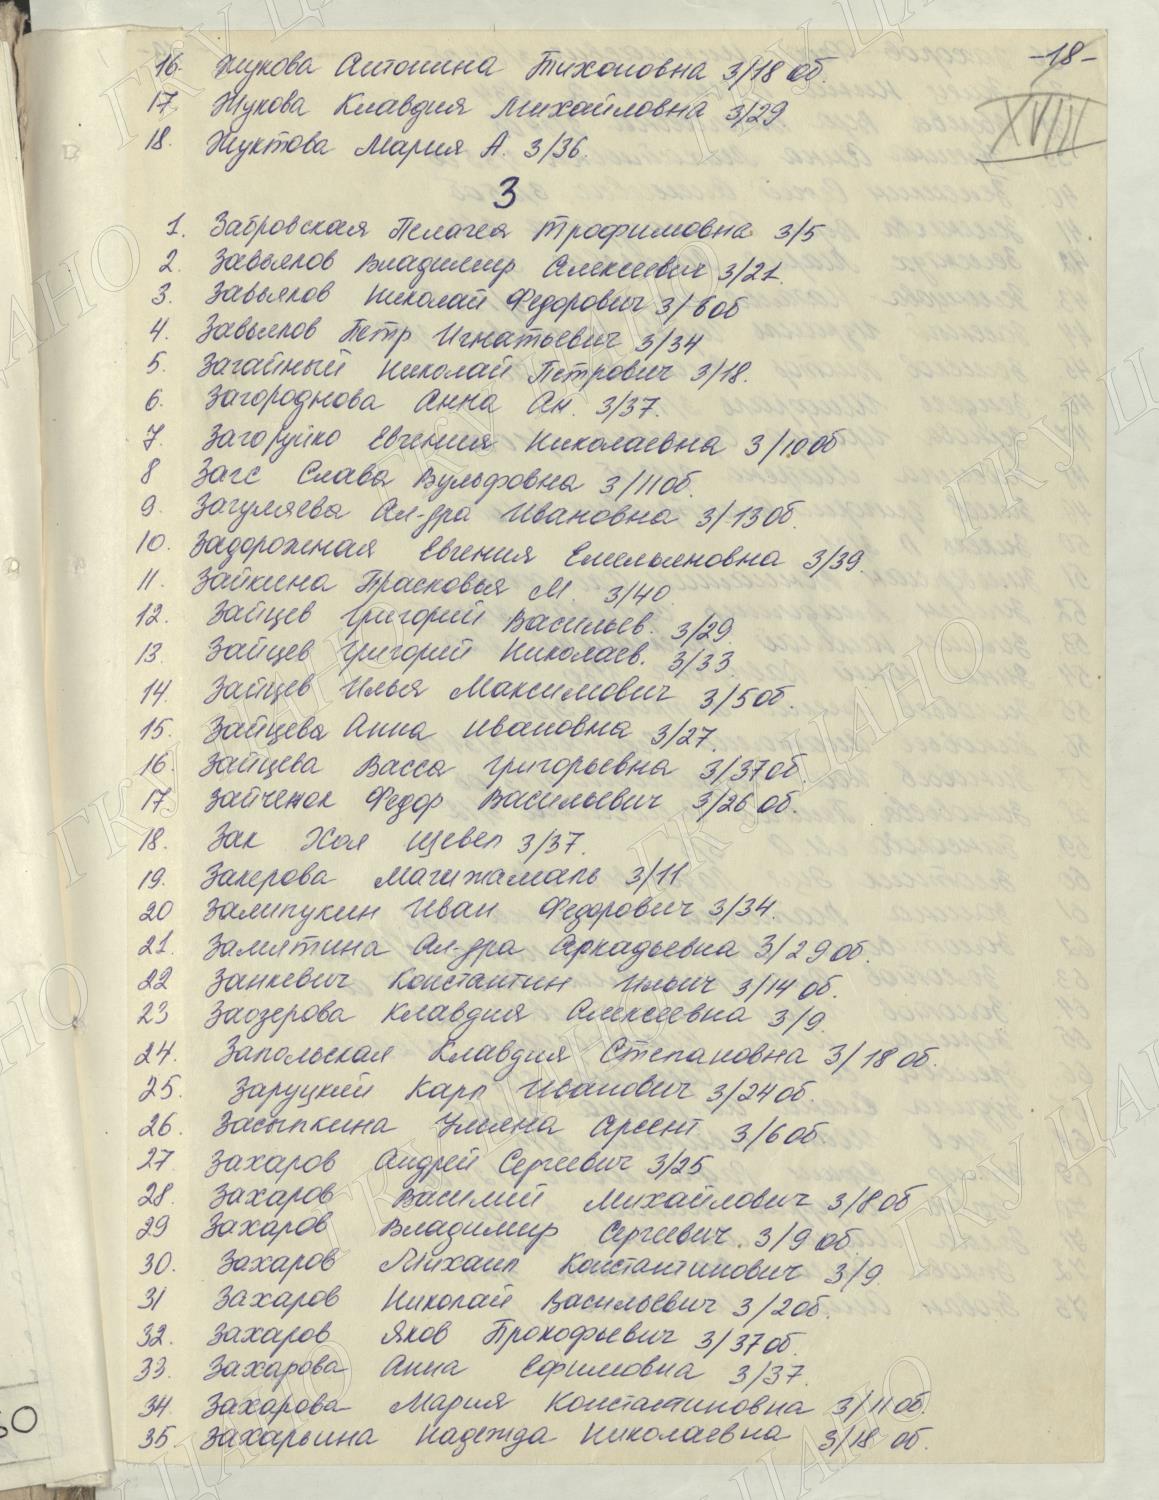 -18-
XVIII
16. Жукова Антонина Тихоновна 3/18 об.
17. Жукова Клавдия Михайловна 3/29
18. Жуктова Мария А. 3/36.
З
1. Забровская Пелагея Трофимовна 3/5
2. Завьялов Владимир Алексеевич 3/21.
3. Завьялов Николай Федорович 3/6 об
4. Завьялов Петр Игнатьевич 3/34
5. Загайный Николай Петрович 3/18.
6. Загороднова Анна Ан. 3/37.
7. Загоруйко Евгения Николаевна 3/10 об
8 Загс Слава Вульфовна 3/11 об.
9. Загуляева Ал-дра Ивановна 3/13 об.
10. Задорожная Евгения Емельяновна 3/39.
11. Зайкина Прасковья М. 3/40.
12. Зайцев Григорий Васильев. 3/29.
13. Зайцев Григорий Николаев. 3/33
14. Зайцев Илья Максимович 3/5 об.
15. Зайцева Анна Ивановна 3/27.
16. Зайцева Васса Григорьевна 3/37 об.
17. Зайченок Федор Васильевич 3/26 об.
18. Зак Хая Шевел 3/37.
19. Закерова Магижамаль 3/11
20 Залипукин Иван Федорович 3/34.
21. Замятина Ал-дра Аркадьевна 3/29 об.
22 Занкевич Константин Ильич 3/14 об.
23 Заозерова Клавдия Алексеевна 3/9.
24. Запольская Клавдия Степановна 3/18 об.
25. Заруцкий Карп Иванович 3/24 об.
26. Засыпкина Ульяна Арсент 3/6 об
27 Захаров Андрей Сергеевич 3/25
28. Захаров Василий Михайлович 3/8 об
29 Захаров Владимир Сергеевич. 3/9 об.
30. Захаров Михаил Константинович 3/9.
31 Захаров Николай Васильевич 3/2 об.
32. Захаров Яков Прокофьевич 3/37 об.
33. Захарова Анна Ефимовна 3/37.
34. Захарова Мария Константиновна 3/11 об.
35. Захарьина Надежда Николаевна 3/18 об.
ГКУ ЦАНО